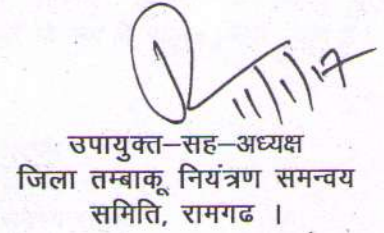 11/1/17
उपायुक्त–सह–अध्यक्ष
जिला तम्बाकू नियंत्रण समन्वय
समिति, रामगढ ।